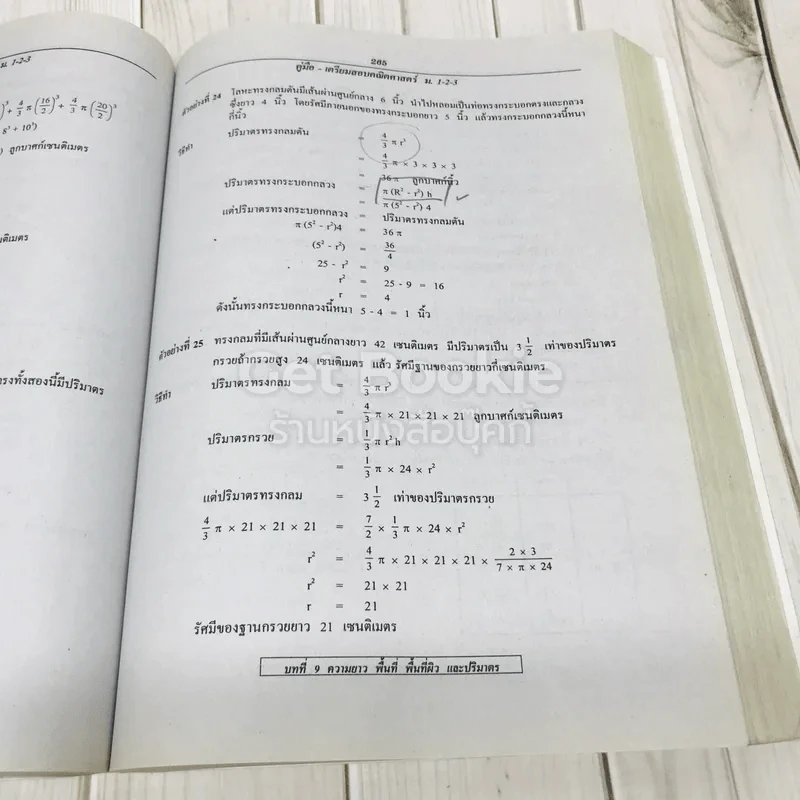 ม. 1-2-3
8³ + 10³)
ลูกบาศก์เซนติเมตร
รงทั้งสองนี้มีปริมาตร
265
คู่มือ - เตรียมสอบคณิตศาสตร์ ม. 1-2-3
ตัวอย่างที่ 24 โลหะทรงกลมตันมีเส้นผ่านศูนย์กลาง 6 นิ้ว นำไปหลอมเป็นท่อทรงกระบอกตรงและกลวง
ซึ่งยาว 4 นิ้ว โดยรัศมีภายนอกของทรงกระบอกยาว 5 นิ้ว แล้วทรงกระบอกกลวงนี้หนา
กี่นิ้ว
วิธีทำ ปริมาตรทรงกลมตัน = 4/3 π r³
= 4/3 π × 3 × 3 × 3
= 36 π ลูกบาศก์นิ้ว
ปริมาตรทรงกระบอกกลวง = π (R² - r²) h
= π (5² - r²) 4
แต่ปริมาตรทรงกระบอกกลวง = ปริมาตรทรงกลมตัน
π (5² - r²)4 = 36 π
(5² - r²) = 36/4
25 - r² = 9
r² = 25 - 9 = 16
r = 4
ดังนั้นทรงกระบอกกลวงนี้หนา 5 - 4 = 1 นิ้ว
ตัวอย่างที่ 25 ทรงกลมที่มีเส้นผ่านศูนย์กลางยาว 42 เซนติเมตร มีปริมาตรเป็น 3 1/2 เท่าของปริมาตร
กรวยถ้ากรวยสูง 24 เซนติเมตร แล้ว รัศมีฐานของกรวยยาวกี่เซนติเมตร
วิธีทำ ปริมาตรทรงกลม = 4/3 π r³
= 4/3 π × 21 × 21 × 21 ลูกบาศก์เซนติเมตร
ปริมาตรกรวย = 1/3 π r² h
= 1/3 π × 24 × r²
แต่ปริมาตรทรงกลม = 3 1/2 เท่าของปริมาตรกรวย
4/3 π × 21 × 21 × 21 = 7/2 × 1/3 π × 24 × r²
r² = 4/3 π × 21 × 21 × 21 × 2 × 3/7 × π × 24
r² = 21 × 21
r = 21
รัศมีของฐานกรวยยาว 21 เซนติเมตร
บทที่ 9 ความยาว พื้นที่ พื้นที่ผิว และปริมาตร
Get Bookie
ร้านหนังสือบุ๊คกี้